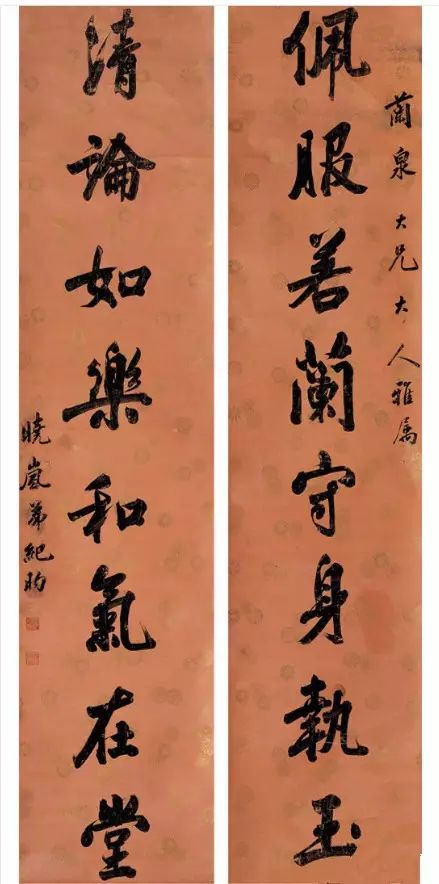 蘭泉大兄大人雅属
佩服若蘭守身執玉
清論如樂和氣在堂
曉嵐弟紀昀